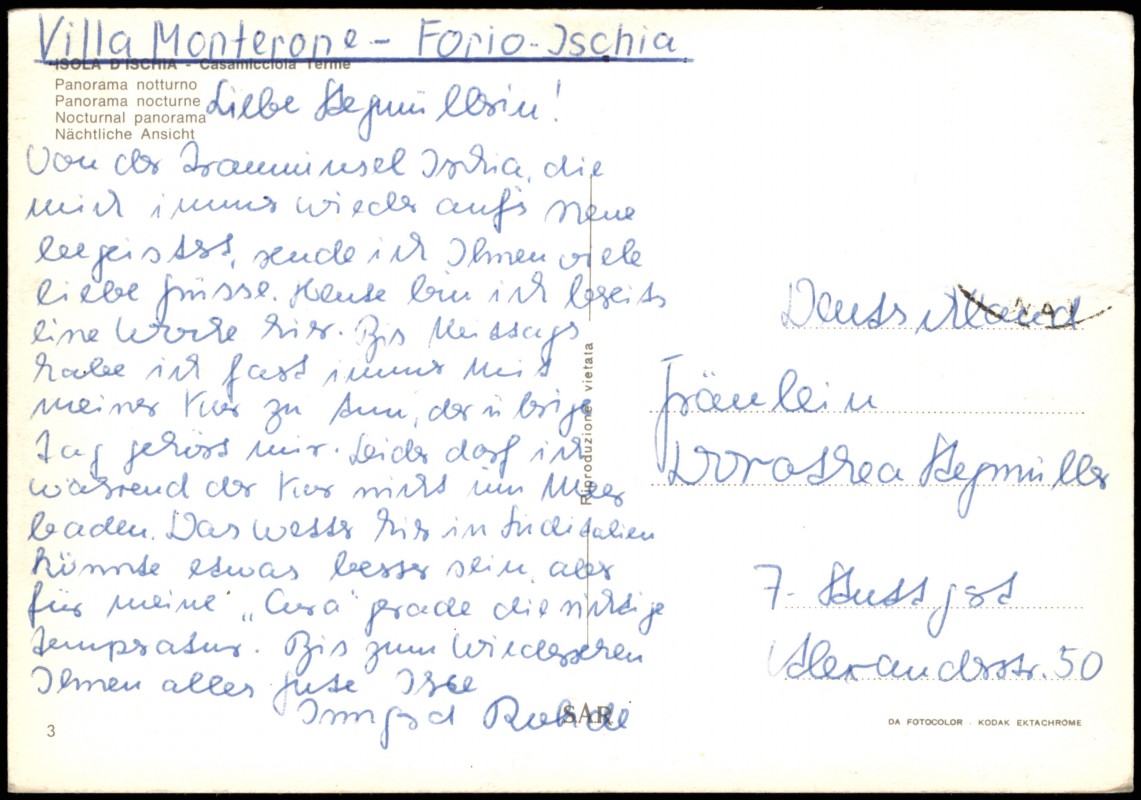 Villa Monterone - Forio-Ischia
ISOLA D'ISCHIA - Casamicciola Terme
Panorama notturno
Panorama nocturne
Nocturnal panorama
Nächtliche Ansicht
Liebe Stegmüllerin!
Von der Trauminsel Ischia, die
mich immer wieder aufs neue
begeistert, sende ich Ihnen viele
liebe Grüsse. Heute bin ich bereits
eine Woche hier. Bis Mittags
habe ich fast immer mit
meiner Kur zu tun, der übrige
Tag gehört mir. Leider darf ich
während der Kur nicht im Meer
baden. Das Wetter hier in Süditalien
könnte etwas besser sein, aber
für meine „Cura" gerade die richtige
Temperatur. Bis zum Wiedersehen
Ihnen alles gute Ihre
Irmgard
Riproduzione vietata
SAR
3
Deutschland
Fräulein
Dorothea Stegmüller
7. Stuttgart
Alexanderstr. 50
DA FOTOCOLOR - KODAK EKTACHROME